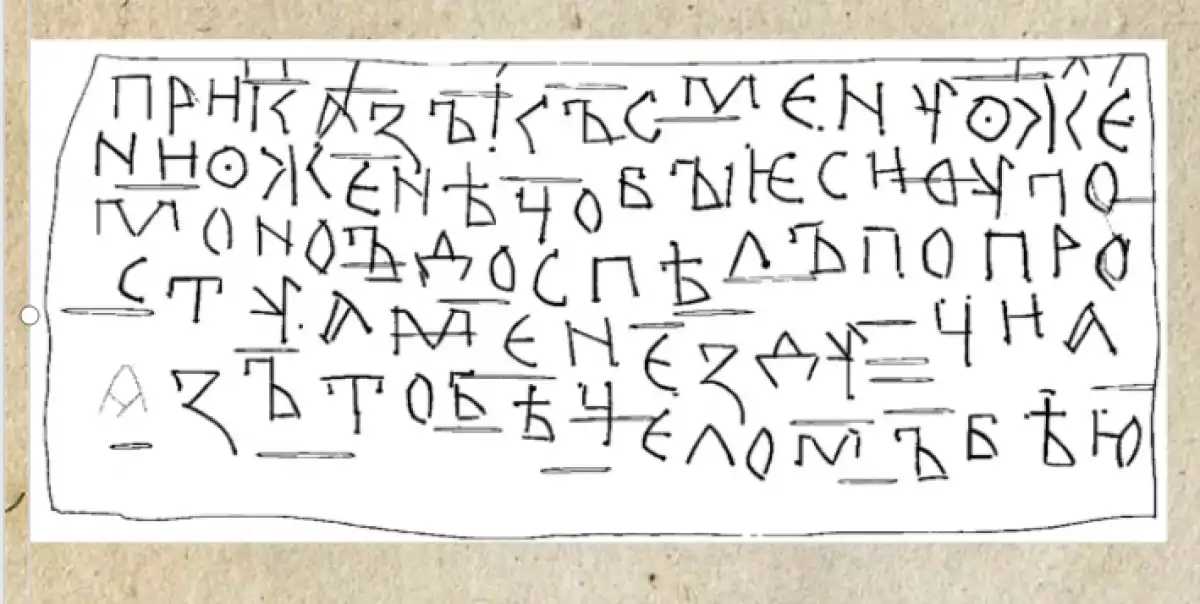 ПРНКАЗЪ!КЪСМЕNУОЖЕ
NНОЖЕNѢЧОБЪІѤСНОУПО
МОNОЪДОСПѢЛЪПОПРО
СТУАМЕNЕЗДУЧНА
АЗЪТОБѢЧЕЛОМЪБѢЮ